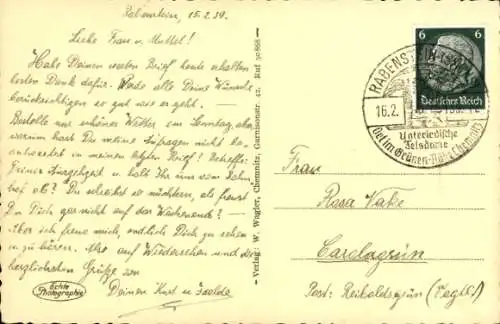 Rabenstein, 15.2.39.
Liebe Frau u. Muttel!
Habe Deinen netten Brief heute erhalten
besten Dank dafür. Werde alle Deine Wünsche
berücksichtigen so gut wie es geht. —
Bestelle nur schönes Wetter am Sonntag, aber
warum hast Du meine Anfragen nicht be-
antwortet in meinem letzten Brief?
Deiner
ab? Du schreibst so nüchtern, als freust
Du Dich gar nicht auf das Wochenend? —
Aber ich freue mich, endlich Dich zu sehen
u. zu hören. Also auf Wiedersehen und die
herzlichsten Grüße von
Deinem Kurt u. Isolde
Echte
Photographie
- Verlag: W. Wagler, Chemnitz, Garnisonstr. 42, Ruf 50868 -
6 6
Deutsches Reich
RABENSTEIN
16.2.
Unterirdische
Felsdome
Ort im Grünen - Nähe Chemnitz
Frau
Rosa
Carolagrün
Post: Reiboldsgrün (Vogtl.)